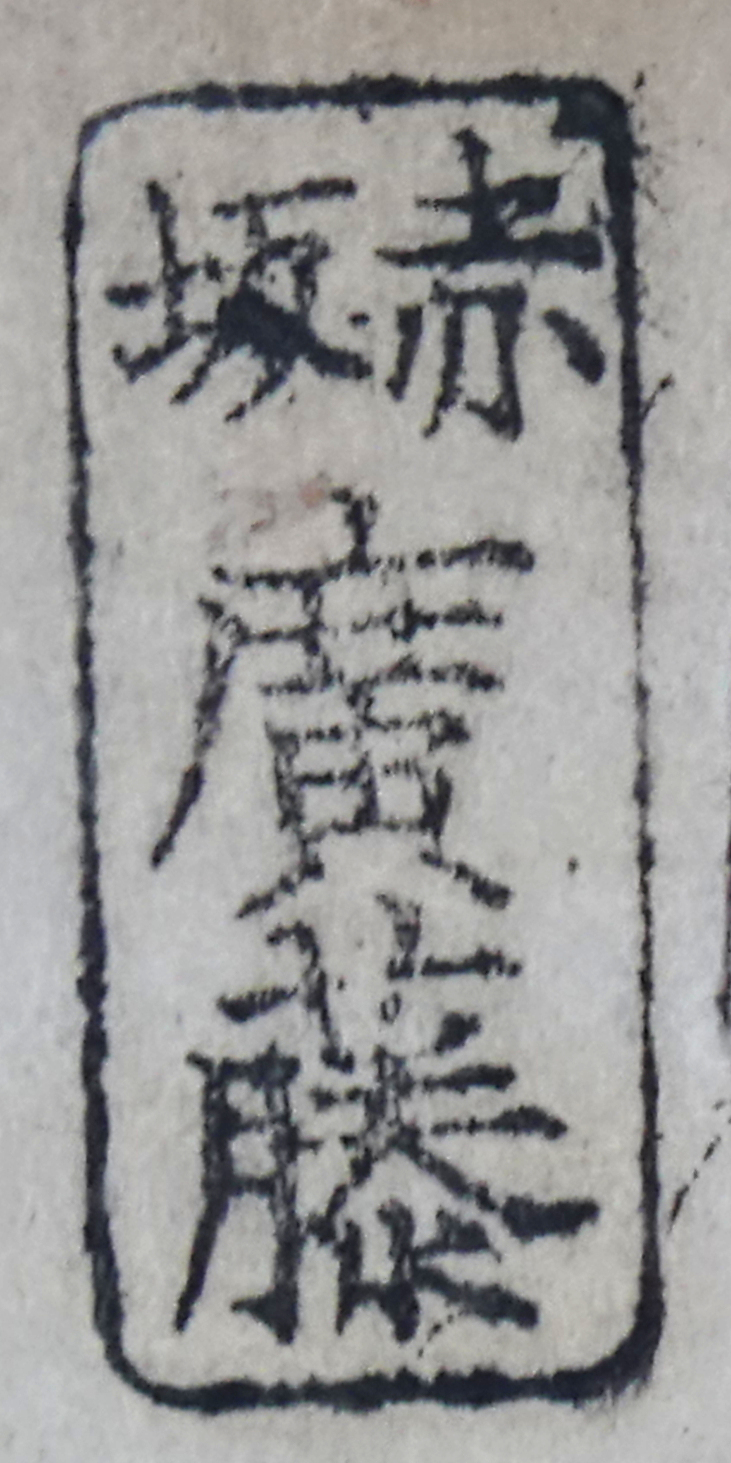 赤坂
廣藤